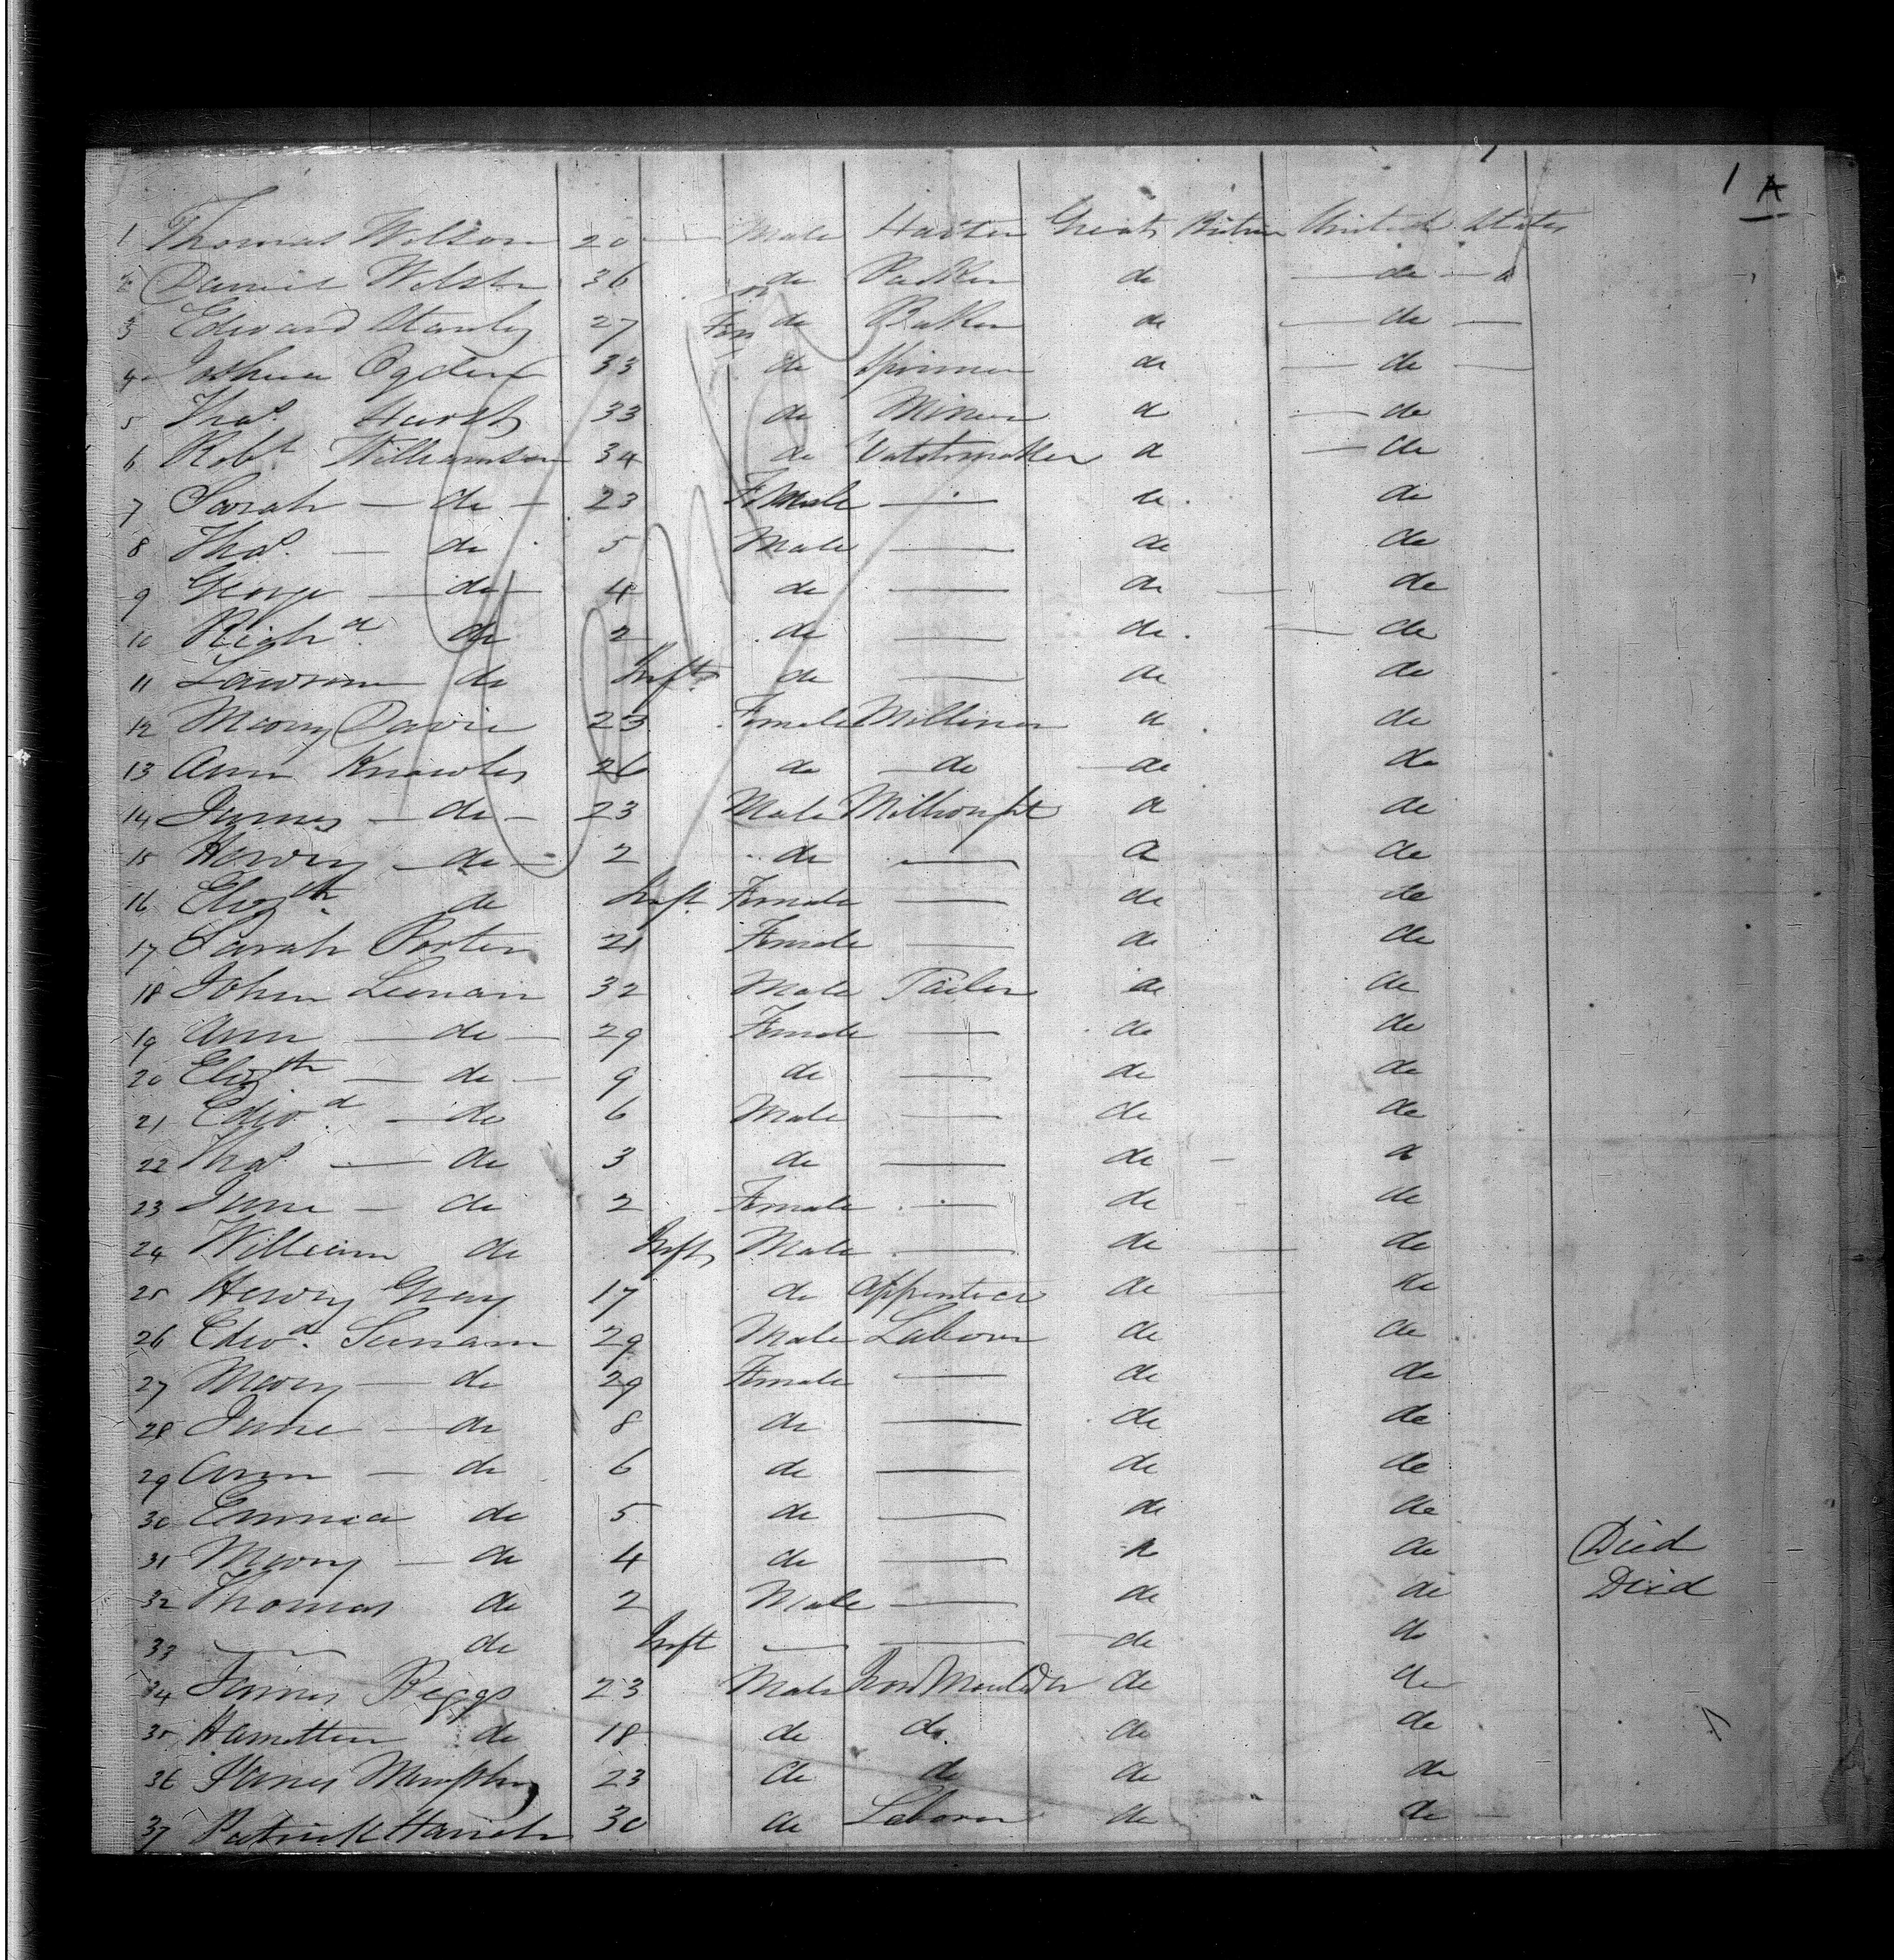 1 A
1 Thomas Wilson 20 — Male Hatter Great Britain United States
2 Daniel Welsh 36 do do — do —
3 Edward Stanley 27 do Baker do — do —
4 Joshua Ogden 33 do Spinner do — do —
5 Thos Hurst 33 do Miner do — do
6 Robt Williamson 34 do Watchmaker do — do
7 Sarah — do — 23 Female — do do
8 Thos. — do 5 Male — do do
9 George — do — 4 do — do do
10 Richd do 2 do — do — do
11 Lawrence do Inft do — do do
12 Mary Davis 23 Female Milliner do do
13 Ann Knowles 26 do — do do do
14 James — do — 23 Male Millwright do do
15 Henry — do — 2 do — do do
16 Elizth do Inft Female — do do
17 Sarah Porter 21 Female — do do
18 John 32 Male Tailor do do
19 Ann — do — 29 Female — do do
20 Elizth — do — 9 do — do do
21 Edwd — do 6 Male — do do
22 Thos — do 3 do — do do
23 Jane — do 2 Female — do do
24 William do Inft Male — do do
25 Henry Gray 17 do Apprentice do do
26 Edwd. 29 Male Laborer do do
27 Mary — do 29 Female — do do
28 Jane — do 8 do — do do
29 Ann — do 6 do — do do
30 Emma do 5 do — do do
31 Mary — do 4 do — do do Died
32 Thomas do 2 Male — do do Died
33 — do Inft — — do do
34 James Beggs 23 Male Iron Moulder do do
35 Hamilton do 18 do do. do do
36 James Murphy 23 do do do do
37 Patrick 30 do Laborer do do